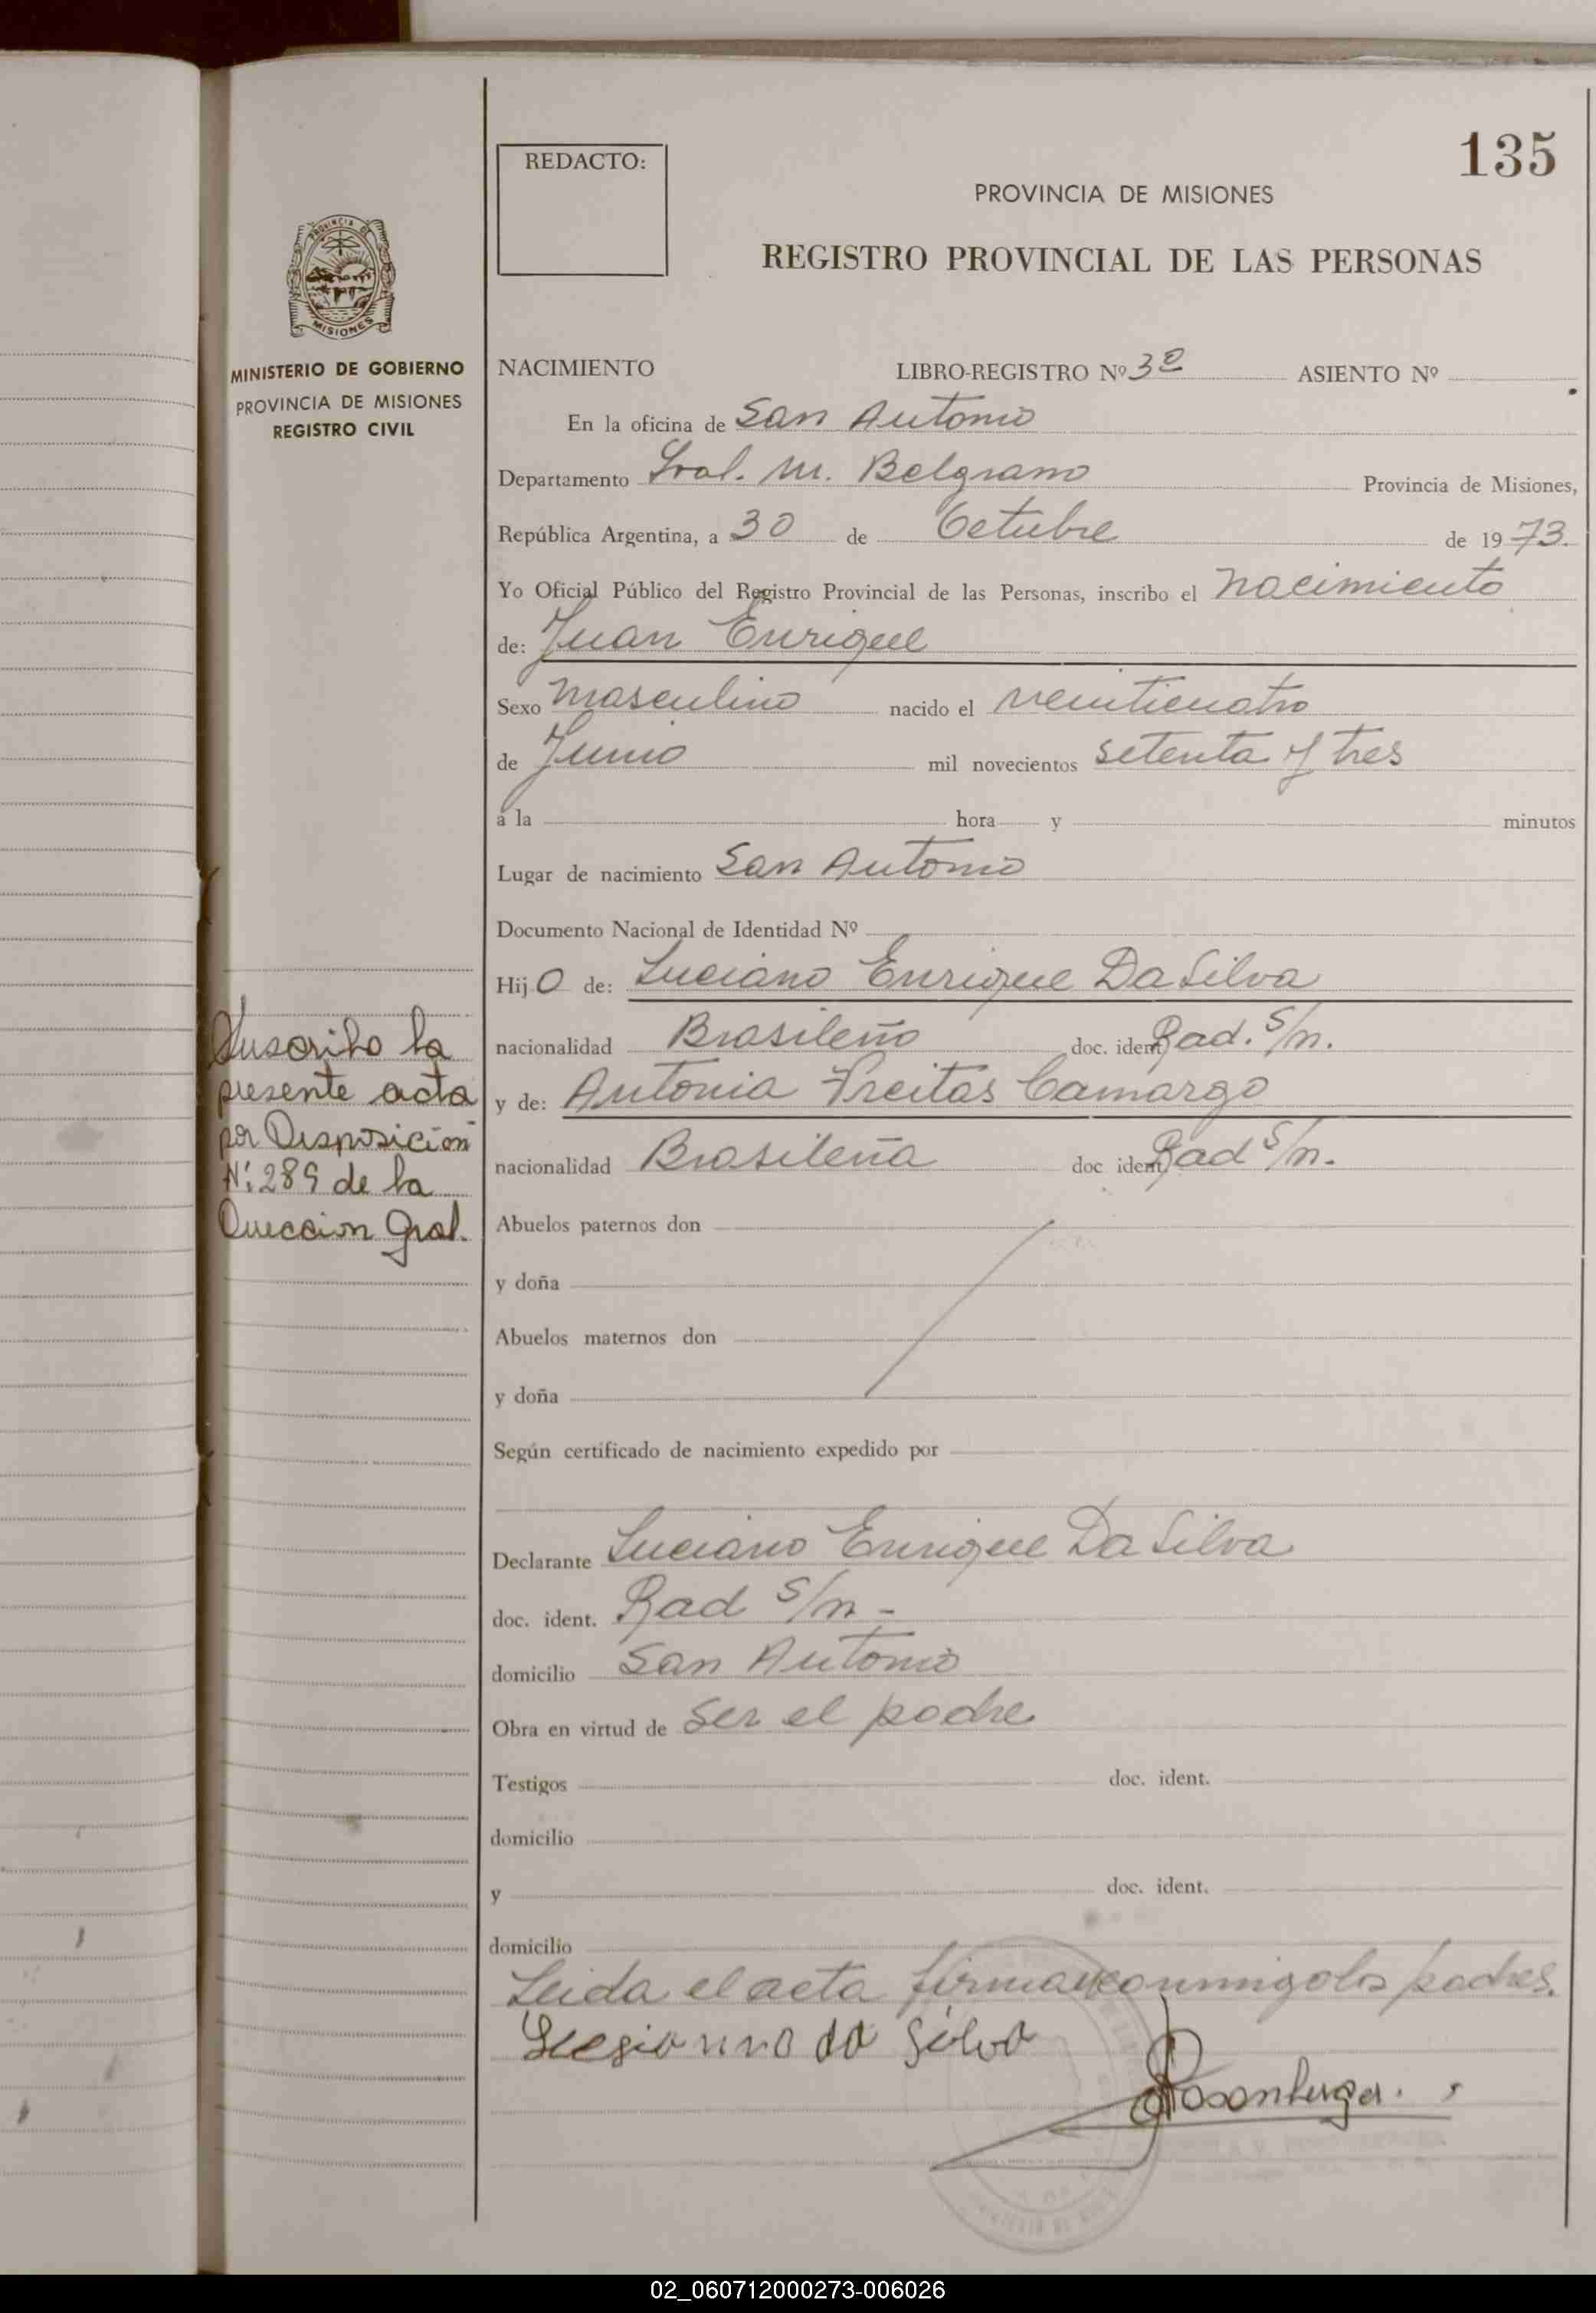 135
REDACTO:
PROVINCIA DE MISIONES
REGISTRO PROVINCIAL DE LAS PERSONAS
PROVINCIA DE
MISIONES
MINISTERIO DE GOBIERNO
PROVINCIA DE MISIONES
REGISTRO CIVIL
NACIMIENTO LIBRO-REGISTRO Nº 3º ASIENTO Nº
En la oficina de San Antonio
Departamento Gral. M. Belgrano Provincia de Misiones,
República Argentina, a 30 de Octubre de 1973.
Yo Oficial Público del Registro Provincial de las Personas, inscribo el nacimiento
de: Juan Enrique
Sexo masculino nacido el veinticuatro
de Junio mil novecientos setenta y tres
a la hora y minutos
Lugar de nacimiento San Antonio
Documento Nacional de Identidad Nº
Hijo de: Luciano Enrique Da Silva
nacionalidad Brasileño doc. ident Rad. S/n.
y de: Antonia Freitas Camargo
nacionalidad Brasileña doc ident Rad S/n.
Abuelos paternos don
y doña
Abuelos maternos don
y doña
Según certificado de nacimiento expedido por
Declarante Luciano Enrique Da Silva
doc. ident. Rad S/n -
domicilio San Antonio
Obra en virtud de ser el padre
Testigos doc. ident.
domicilio
y doc. ident.
domicilio
Leida el acta firman conmigo los padres.
da Silva
Suscribo la
presente acta
por Disposición
Nº: 289 de la
Dirección Gral.
02_060712000273-006026